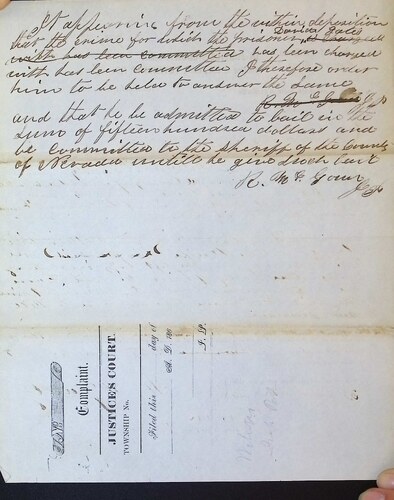 It appearing from the within deposition
that the crime for which the prisoner David Gale
with has been committed was been charged
with has been committed I therefore order
him to be held to answer the same
and that he be admitted to bail in the
sum of fifteen hundred dollars and
be committed to the Sheriff of the County
of Nevada until he give such bail
R. M. G.
J P
Complaint.
JUSTICE'S COURT.
TOWNSHIP No.
Filed this day of
A. D. 18
J. P.